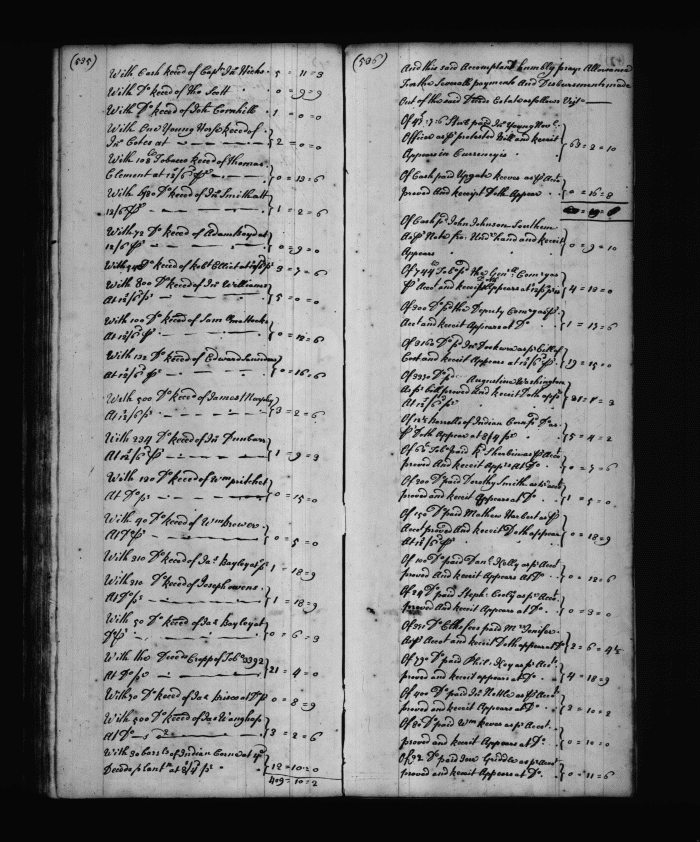 (535)
With Cash Recd of Capt Jno Hicks . 5 = 11 = 3
With Do Recd of Tho Scott . 0 = 9 = 9
With Do Recd of Joh Cornhill 1 = 0 = 0
With One Young Horse Recd of
Jno Coles at } 2 = 0 = 0
With 108 Tobacco Recd of Thomas
Clement at 12/6 P } 0 = 13 = 6
With 180 Do Recd of Jno Smith att
12/6 P } 1 = 2 = 6
With 72 Do Recd of Adam Head at
12/6 P } 0 = 9 = 0
With Do Recd of Robt Elliot at 3 = 7 = 6
With 800 Do Recd of Jno Williams
At 12/6 P } 5 = 0 = 0
With 100 Do Recd of Sam
At 12/6 P } 0 = 12 = 6
With 132 Do Recd of Edward
At 12/6 P } 0 = 16 = 6
With 500 Do Recd of James
At 12/6 P } 3 = 2 = 6
With 234 Do Recd of Jno Dunbar
At 12/6 P } 1 = 9 = 3
With 120 Do Recd of Wm pritchet
At Do P } 0 = 15 = 0
With 40 Do Recd of Wm
At Do P } 0 = 5 = 0
With 310 Do Recd of Jas Bayley at P 1 = 18 = 9
With 310 Do Recd of Joseph owens
At Do P } 1 = 18 = 9
With 50 Do Recd of Jas Bayley at
Do P } 0 = 6 = 3
With the Decds Cropp of Tobo 3392
At Do P } 21 = 4 = 0
With 70 Do Recd of Jas at Do P 0 = 8 = 9
With 500 Do Recd of Jas
At Do } 3 = 2 = 6
With 30 barrls of Indian Corne at ye
Decds plantn at 8/4 P } 12 = 10 = 0
409 = 10 = 2
(536)
And this said Accomptant humbly prays Allowance
For the Severall payments and Disbursements made
Out of the said Decds Estate as follows Vizt
Of 45 : 7 : 6 Sterl paid Jno Young Nov
Office as P protested Bill and Receit
Appears in Currency is } 63 = 2 = 10
Of Cash paid Upgate as P Acct
proved And Receipt Doth Appear } 0 = 16 = 8
Of Cash P John Johnson Southern
As P Note fro: Undr hand and Receit
Appears } 0 = 9 = 10
Of 744 Tobo P the Genll Comrys as
P Acct and Receipt Doth Appears at 12/6 P } 4 = 13 = 0
Of 300 Do P the Deputy Comry as P
Acct and Receit Appears at Do } 1 = 17 = 6
Of 3160 Do P Jno as P bill of
Cost and Receit Appears at 12/6 P } 19 = 15 = 0
Of 3370 Do P Augustine Washington
As P bill proved and Receit Doth appr
At 12/6 P } 21 = 1 = 3
Of 12½ Barrells of Indian Corn P Do as
P Doth Appear at 8/4 P } 5 = 4 = 2
Of 60 Tobo paid as P Acct
proved And Receit Apprs At Do } 0 = 7 = 6
Of 200 Do paid Dorothy Smith as P Acct
proved and Receit Appears at Do } 1 = 5 = 0
Of 150 Do paid Mathew Herbert as P
Acct proved And Receit Doth appear
At 12/6 P } 0 = 18 = 9
Of 100 Do paid Danl Kelly as P Acct
proved And Receit Appears at Do } 0 = 12 = 6
Of 24 Do paid Steph. Cooly as P Acct
proved And Receit Appears at Do } 0 = 3 = 0
Of 371 Do Clks fees paid Mr Jenifer
As P Acct and Receit Doth appear at Do } 2 = 6 = 4½
Of 790 Do paid Phil: Key as P Acct
proved and receit appears at Do } 4 = 18 = 9
Of 400 Do paid Jno Nettle as P Acct
proved and receit Appears at Do } 2 = 10 = 2
Of 80 Do paid Wm as P Acct
proved and Receit Appears at Do } 0 = 10 = 0
Of 92 Do paid as P Acct
proved and Receit Appears at Do } 0 = 11 = 6